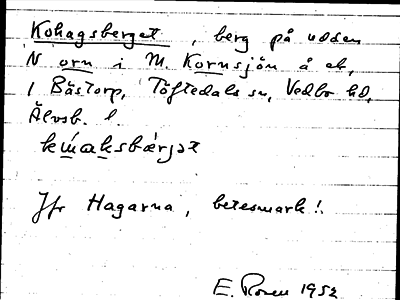 Kohagsberget, berg på udden
N orn i M. Kornsjön å ek,
i Bästorp, Töftedals sn, Vedbo hd,
Älvsb. l.
Jfr Hagarna, betesmark!
E. Rosen 1952